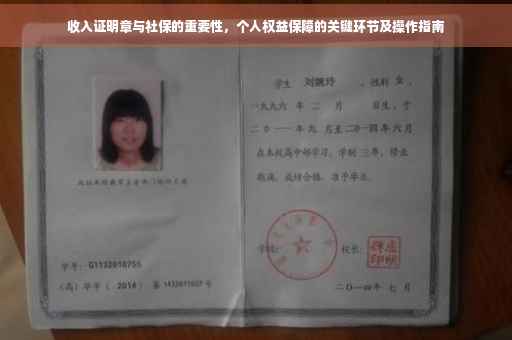 收入证明章与社保的重要性，个人权益保障的关键环节及操作指南
学生 刘婉玲 ，性别 女 ，
一九九六 年 二 月 日生，于
二〇一一 年 九 月至 二〇一四 年 六 月
在本校高中部学习，学制 三 年，修业
期满，成绩合格，准予毕业。
学校：
校长：
学号：G1132010755
（高）毕字（ 2014 ）第 1432011027 号
二〇一四年 七 月